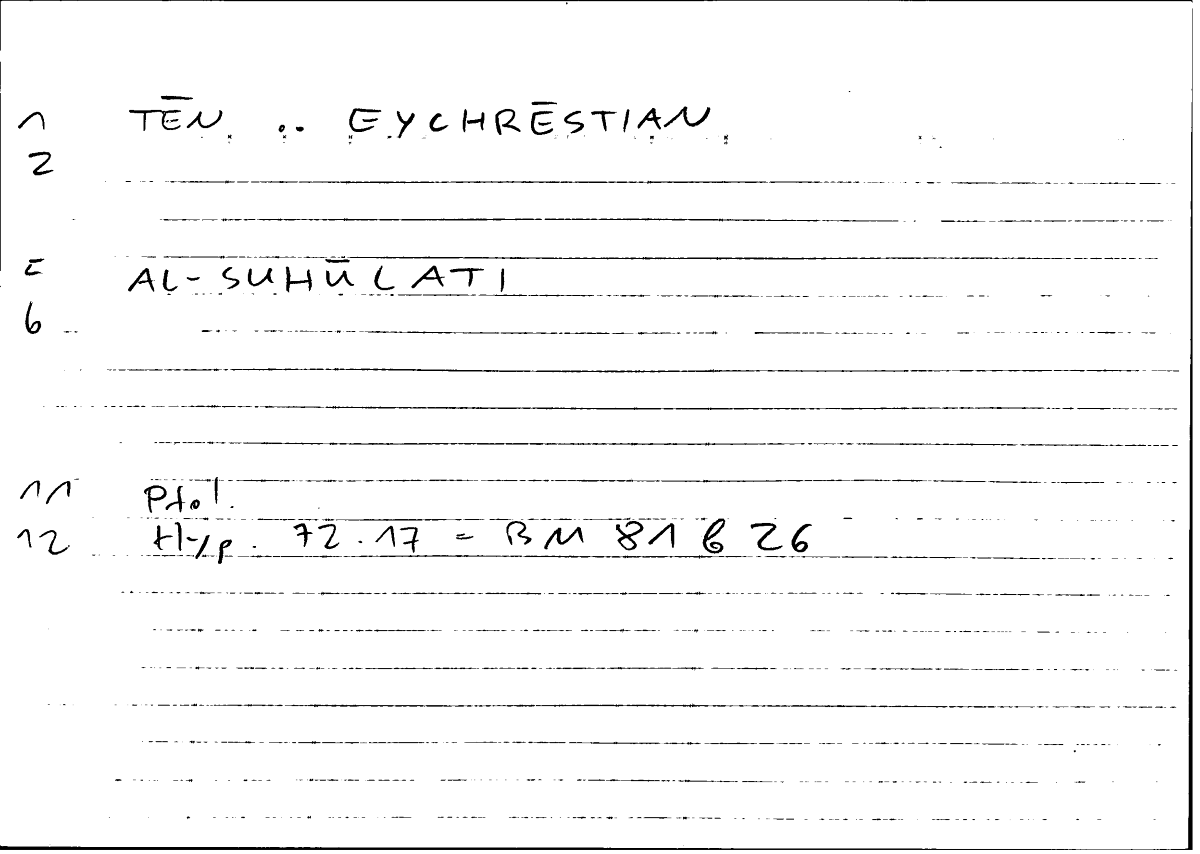 1 TĒN .. EYCHRĒSTIAN
2
5 AL-SUHŪLATI
6
11 Ptol.
12 Hyp. 72.17 = BM 81 b 26